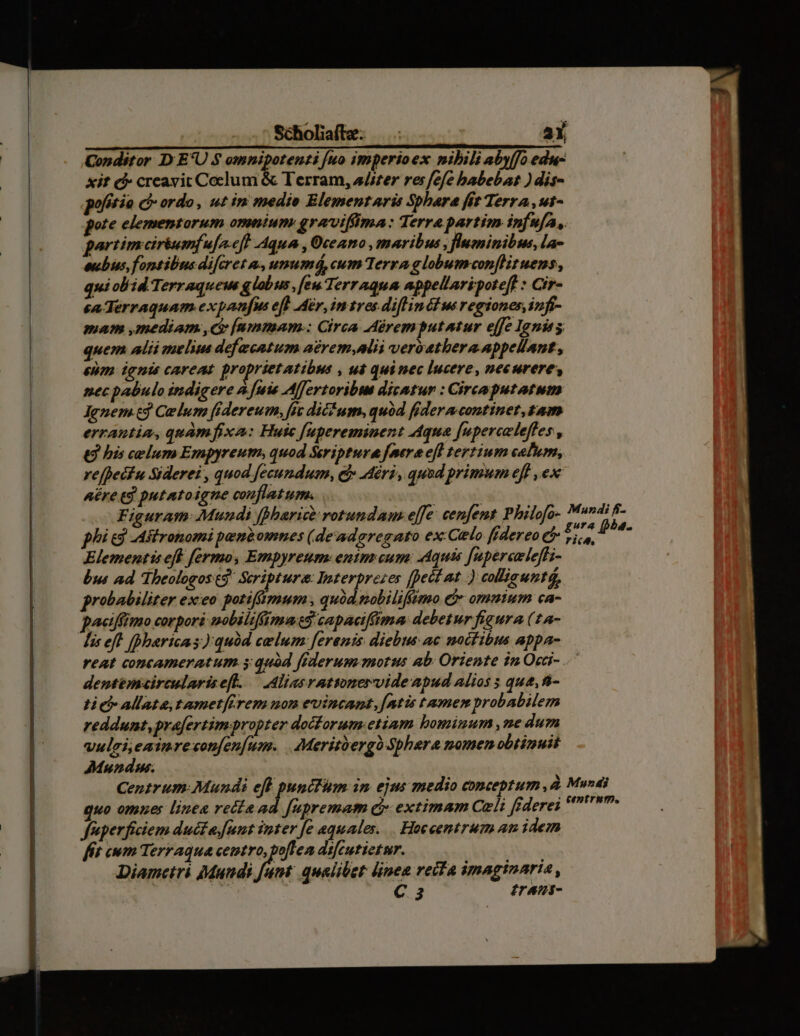 Scholiastæ. 21
Conditor DEUS omnipotenti suo imperio ex nihili abysso edu-
xit & creavit Cœlum & Terram, aliter res sese habebat ) dis-
positio & ordo, ut in medio Elementaris Sphæra sit Terra, ut-
pote elementorum omnium gravissima: Terra partim infusa,
partim circumfusa est Aqua, Oceano, maribus, fluminibus, la-
cubus, fontibus discreta, unumq́, cum Terra globum constituens,
qui ob id Terraqueus globus, seu Terraqua appellari potest : Cir-
ca Terraquam expansus est Aër, in tres distinctus regiones, infi-
mam, mediam, & summam: Circa Aërem putatur esse Ignis;
quem alii melius defæcatum aërem, alii verò æthera appellant,
cùm ignis careat proprietatibus, ut qui nec lucere, nec urere,
nec pabulo indigere à suis Assertoribus dicatur : Circa putatum
Ignem est Cælum sidereum, sic dictum, quòd sidera continet, tam
errantia, quàm fixa: Huic supereminent Aquæ supercælestes,
& his cælum Empyreum, quod Scriptura sacra est tertium cælum,
respectu Siderei, quod secundum, & Aëri, quod primum est, ex
aëre & putato igne conflatum.
Figuram Mundi sphæricè rotundam esse censent Philoso-
Mundi fi-
phi & Astronomi pænè omnes (de adgregato ex Cælo sidereo &
gura sphæ-
rica.
Elementis est sermo, Empyreum enim cum Aquis supercælesti-
bus ad Theologos & Scripturæ Interpretes spectat ) colliguntq́,
probabiliter ex eo potissimum, quòd nobilissimo & omnium ca-
pacissimo corpori nobilissima & capacissima debetur figura (ta-
lis est sphærica;) quòd cælum serenis diebus ac noctibus appa-
reat concameratum; quòd siderum motus ab Oriente in Occi-
dentem circularis est. Alias rationes vide apud alios; quæ, si-
ti & allata, tametsi rem non evincant, satis tamen probabilem
reddunt, præsertim propter doctorum etiam hominum, ne dum
vulgi, ea in re consensum. Meritò ergò Sphæra nomen obtinuit
Mundus.
Centrum Mundi est punctum in ejus medio conceptum, à
Mundi
quo omnes lineæ rectæ ad supremam & extimam Cæli siderei
centrum.
superficiem ductæ, sunt inter se æquales. Hoc centrum an idem
sit cum Terraquæ centro, postea discutietur.
Diametri Mundi sunt qualibet linea recta imaginaria,
C 3 trans-